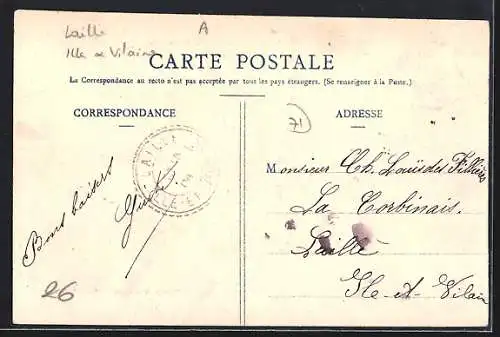 Laillé
Ille & Vilaine
A
CARTE POSTALE
La Correspondance au recto n'est pas acceptée par tous les pays étrangers. (Se renseigner à la Poste.)
CORRESPONDANCE
ADRESSE
71
LAILLÉ
ILLE-ET-
Bons baisers
Monsieur Ch. Louis des
La Corbinais.
Laillé
Ile-et-Vilain
26